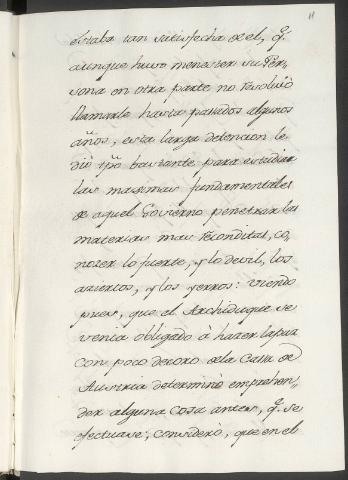 11
estaba tan satisfecha de el, q.e
aunque huvo menester su Per-
sona en otra parte no resolvió
llamarle hasta pasados algunos
años, esta larga detencion le
dió tpõ bastante para estudiar
las maximas fundamentales
de aquel Govierno penetrar las
materias mas reconditas, co-
nozer lo fuerte, y lo devil, los
aziertos, y los yerros: viendo
pues, que el Archiduque se
venia obligado â hazer la paz
con poco decoro de la Casa de
Austria determinò emprehen-
der alguna cosa antes, q.e se
efectuase; considerò, que en el